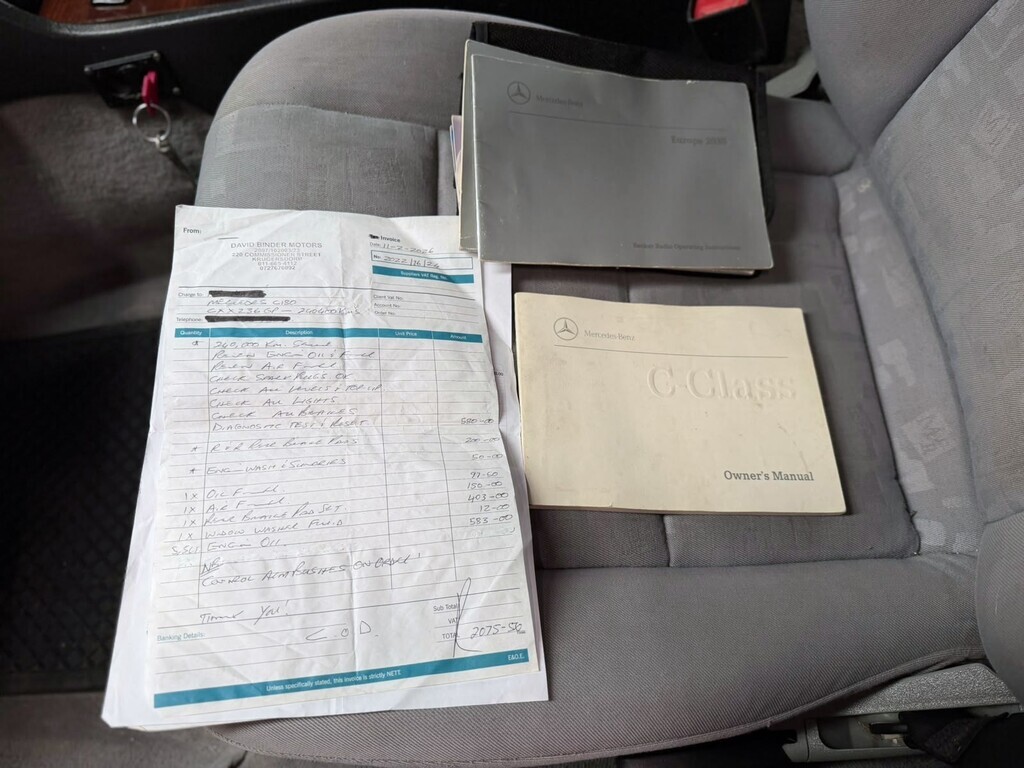 Mercedes-Benz
Europe
Becker Radio Operating Instructions
Mercedes-Benz
C-Class
Owner's Manual
From:
DAVID BINDER MOTORS
420 COMMISSIONER STREET
KRUGERSDORP
Invoice
Date:
No.
Suppliers VAT Reg. No.
Charge to:
MERCEDES C180
GXX 236 GP
Telephone:
Client Vat No:
Account No:
Order No:
Quantity Description Unit Price Amount
* 240,000 Km. Service
Renew Engine Oil & Filter
Renew Air Filter
CHECK ALL LEVELS & TOP UP
CHECK ALL LIGHTS
CHECK ALL BRAKES
DIAGNOSTIC TEST & RESET 580-00
* R&R Rear Brake Pads 200-00
* ENGINE WASH & SUNDRIES 50-00
1X OIL Filter 97-50
1X Air Filter 150-00
1X Rear Brake Pad SET 403-00
1X WINDOW WASHER FLUID 12-00
ENGINE OIL 583-00
NB
CONTROL ARM BUSHES ON ORDER!
THANK YOU!
Banking Details:
C.O.D.
Sub Total
VAT
TOTAL 2075-50
E&O.E.
Unless specifically stated, this invoice is strictly NETT.